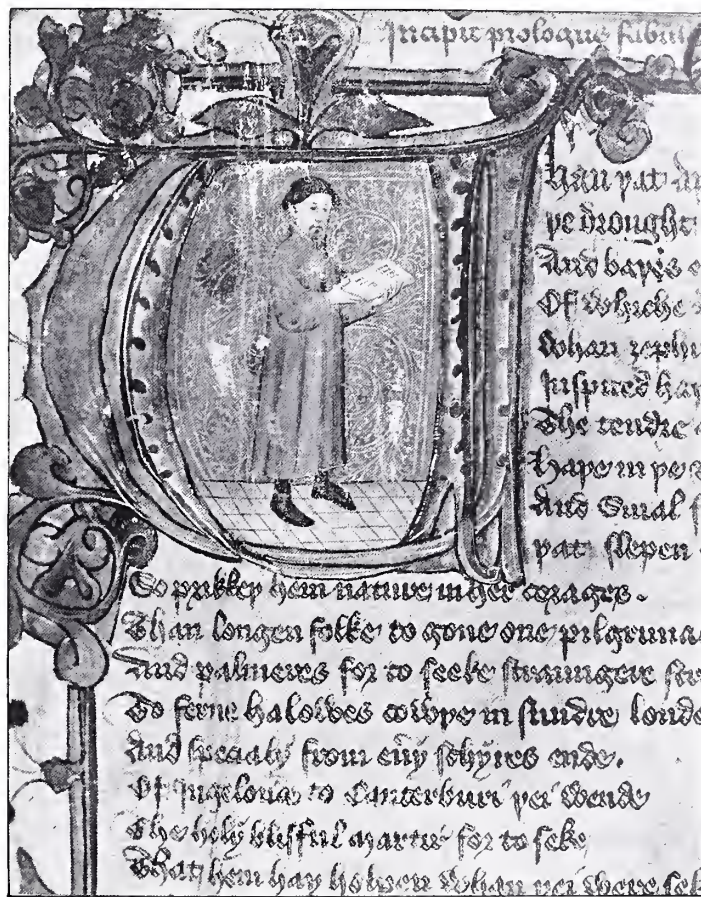 Incipit prologus fabul
Whan þat Ap
þe drought
And baþes e
Of whiche
Whan zephi
Inspired haþ
The tendre
haþe in þe
And Smal f
þat slepen
So prikkeþ hem nature in her corages.
Than longen folke to gone one pilgrima
And palmeres for to seeke straungere str
To ferne halowes cowþe in sundre londe
And specialy from euy schyres ende.
Of Ingelond to Canterburi þei wende
The holy blisful martir for to seke
That hem haþ holpen whan þei were sek